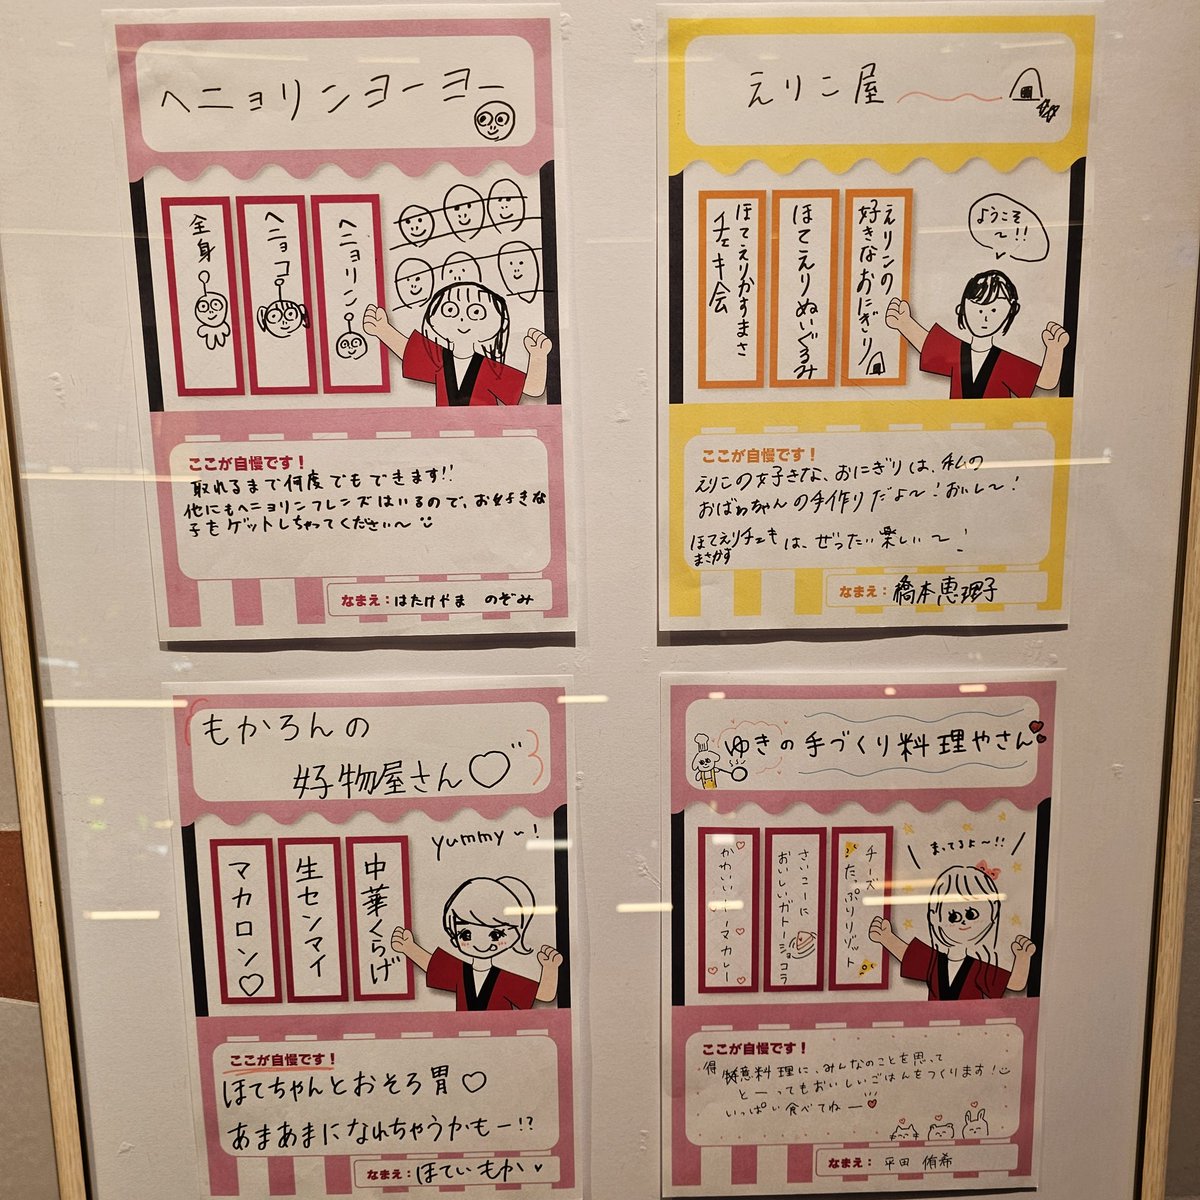 ヘニョリンヨーヨー
ヘニョリン
ヘニョコ
全身
ここが自慢です！
取れるまで何度でもできます!!
他にもヘニョリンフレンズはいるので、お好きな
子もゲットしちゃってください〜
なまえ：はたけやま のぞみ
えりこ屋
ようこそ
〜!!
えりこの
好きなおにぎり
ほてえりぬいぐるみ
ほてえりかすまさ
チェキ会
ここが自慢です！
えりこの好きな、おにぎりは、私の
おばあちゃんの手作りだよ〜！おいし〜！
ほてえりチェキ
まさかす
は、ぜったい楽しい〜！
なまえ：橋本恵理子
もかろんの
好物屋さん♡
yummy~!
中華くらげ
生センマイ
マカロン♡
ここが自慢です！
ほてちゃんとおそろ胃♡
あまあまになれちゃうかもー!?
なまえ：ほてい もか
ゆきの手づくり料理やさん
まってるよ〜!!
チーズ
たっぷりリゾット
さいこーに
おいしいガトーショコラ
かわいいーマカレー
ここが自慢です！
得意料理に、みんなのことを思って
とーってもおいしいごはんをつくります！
いっぱい食べてねー
なまえ：平田 侑希